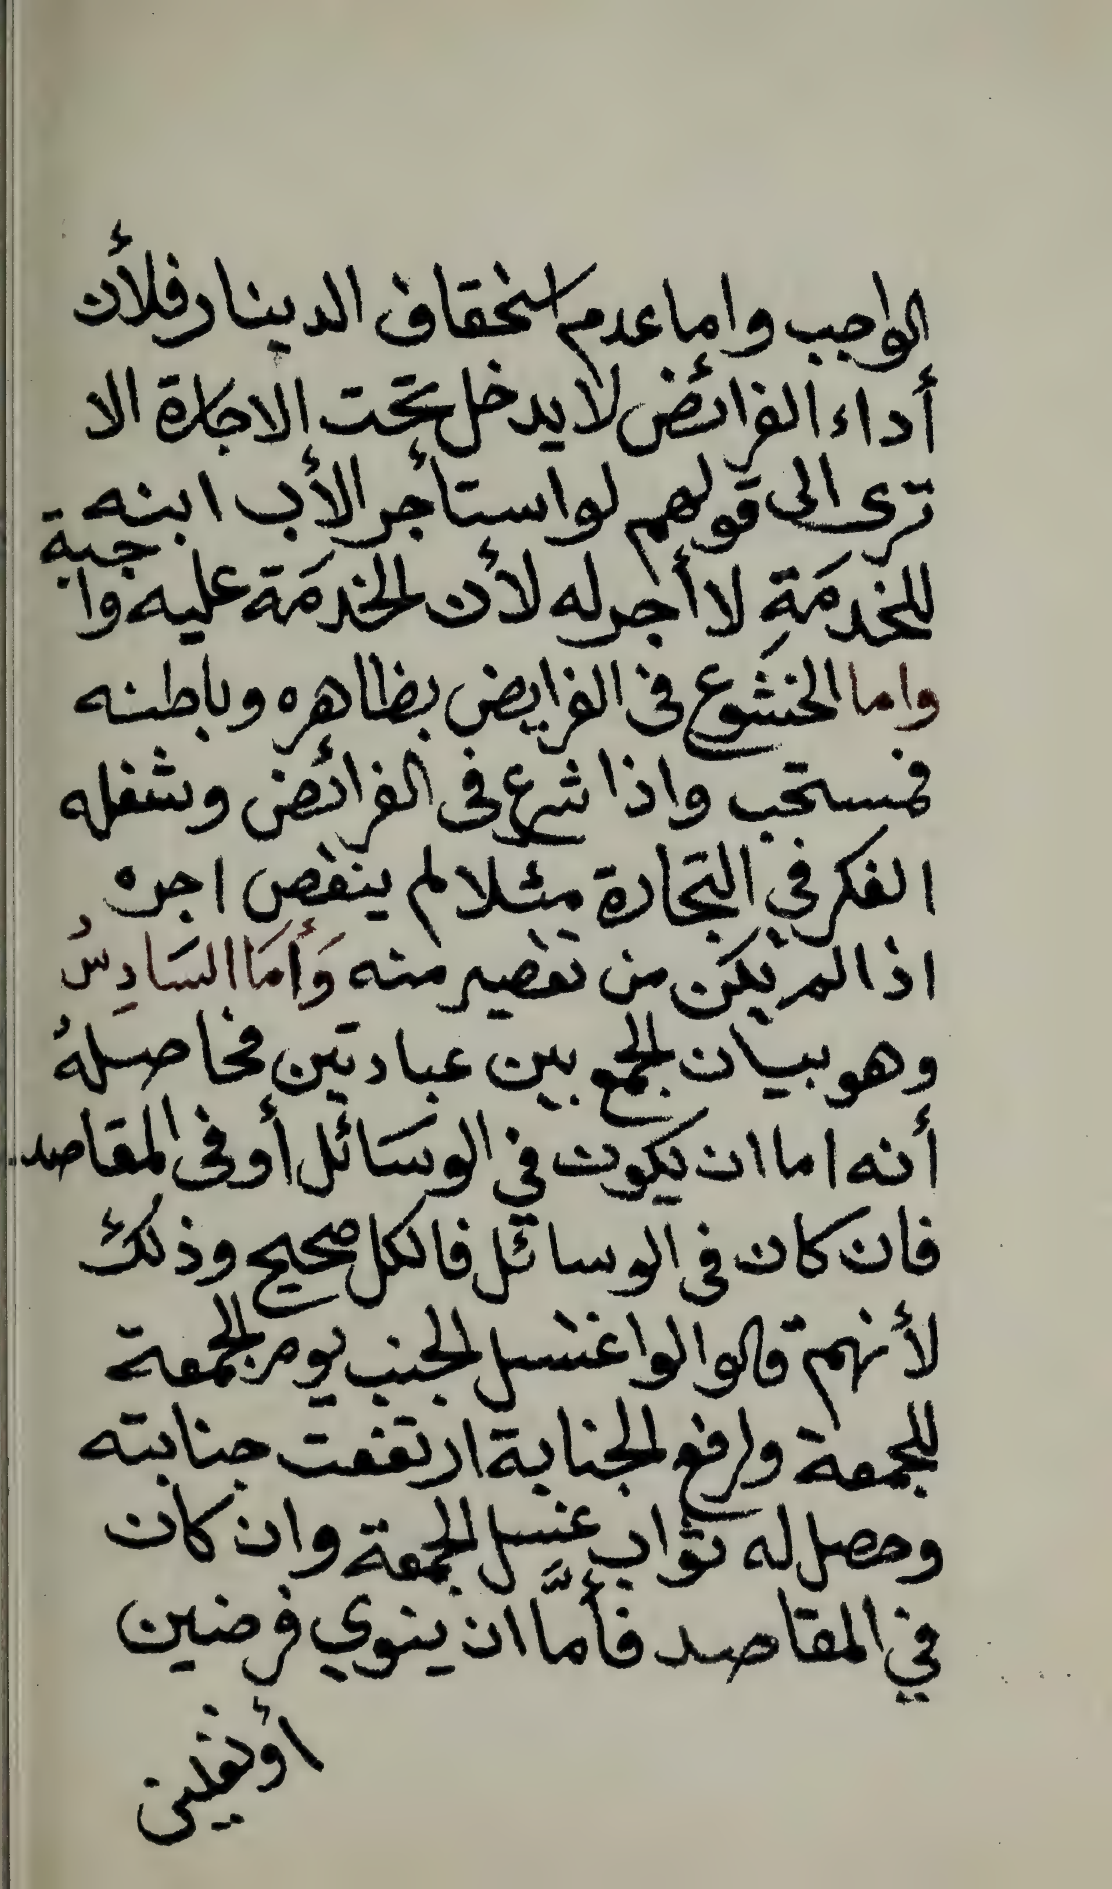 الواجب واما عدم استحقاق الدينار فلأن
أداء الفرائض لا يدخل تحت الاجارة الا
ترى الى قولهم لو استأجر الأب ابنه
للخدمَةِ لا أجر له لأن الخدمَة عليه واجبة
واما الخشوع في الفرايض بظاهره وباطنه
فمستحب واذا شرع في الفرائض وشغله
الفكر في التجارة مثلا لم ينقص اجره
اذا لم يكن من تقصير منه وَأمَا السَادِسُ
وهو بيان الجمع بين عبادتين فحاصلهُ
أنه اما ان يكون في الوسَائل أو في المقاصد
فان كان في الوسائل فالكل صحيح وذلك
لأنهم قالوا لوا غتسل الجنب يوم الجمعة
للجمعة ولرفع الجنابة ارتفعت جنابته
وحصل له ثواب غسل الجمعة وان كان
في المقاصد فأمَّا ان ينوي فرضين
أونفلين